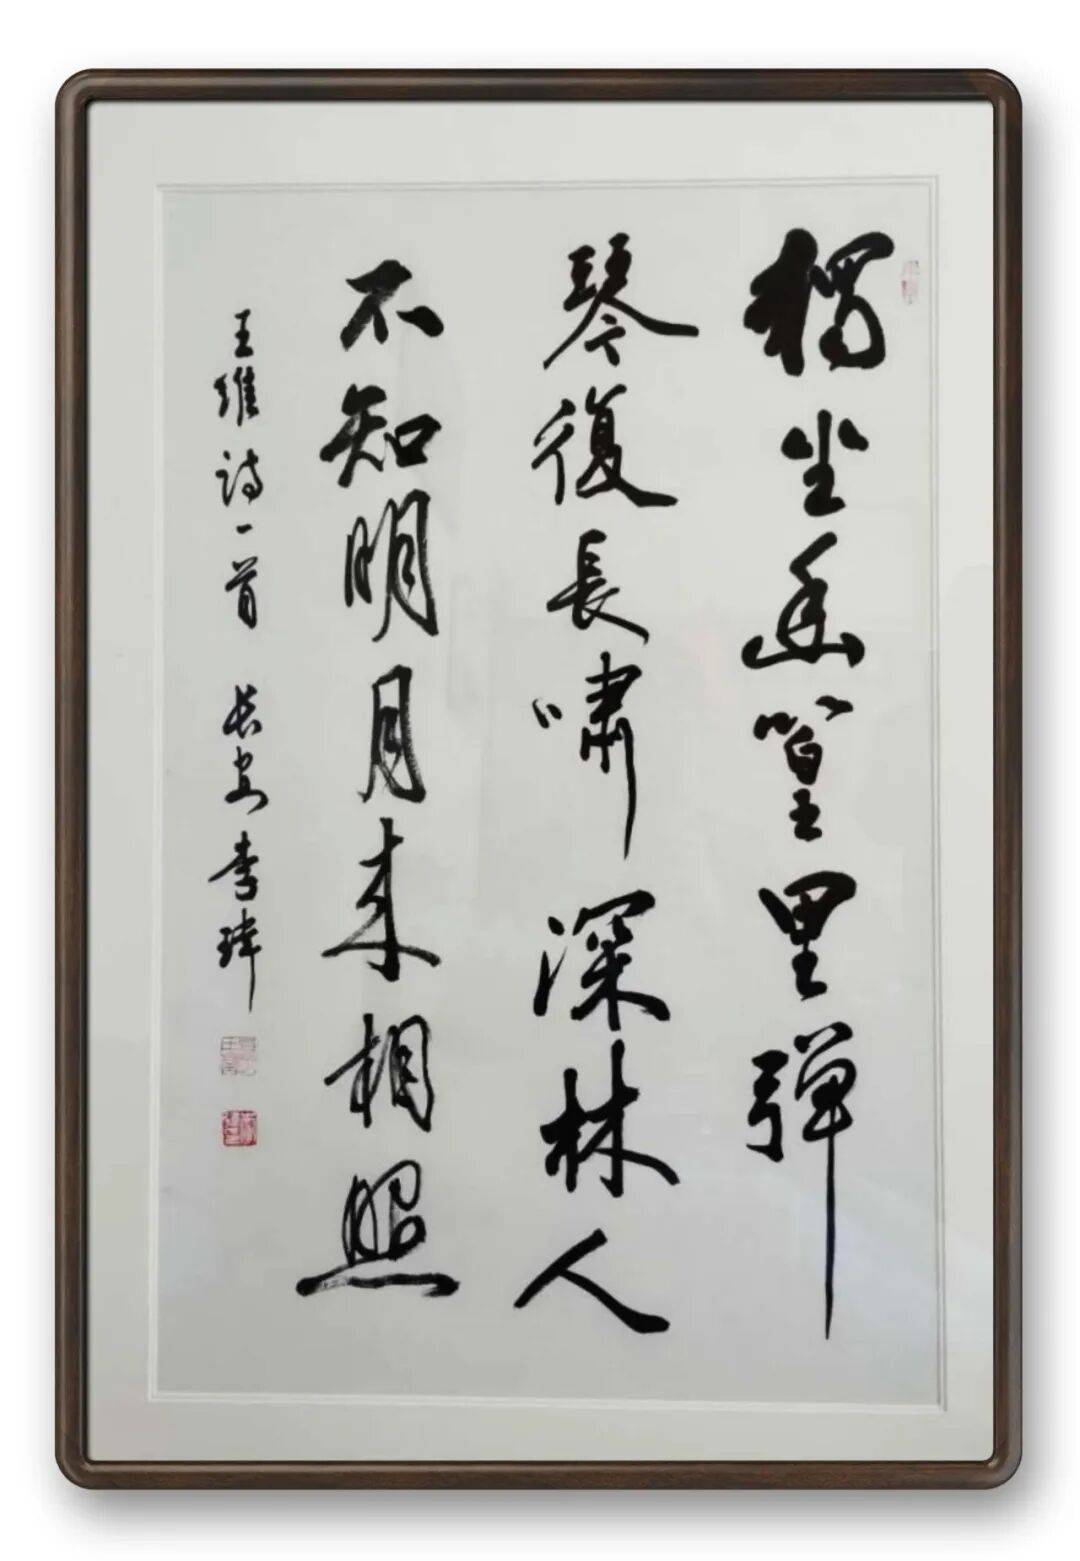 獨坐幽篁里弹
琴復長嘯深林人
不知明月来相照
王維诗一首 长安李瑋